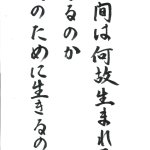 間は何故生まれ
るのか
のために生きるの